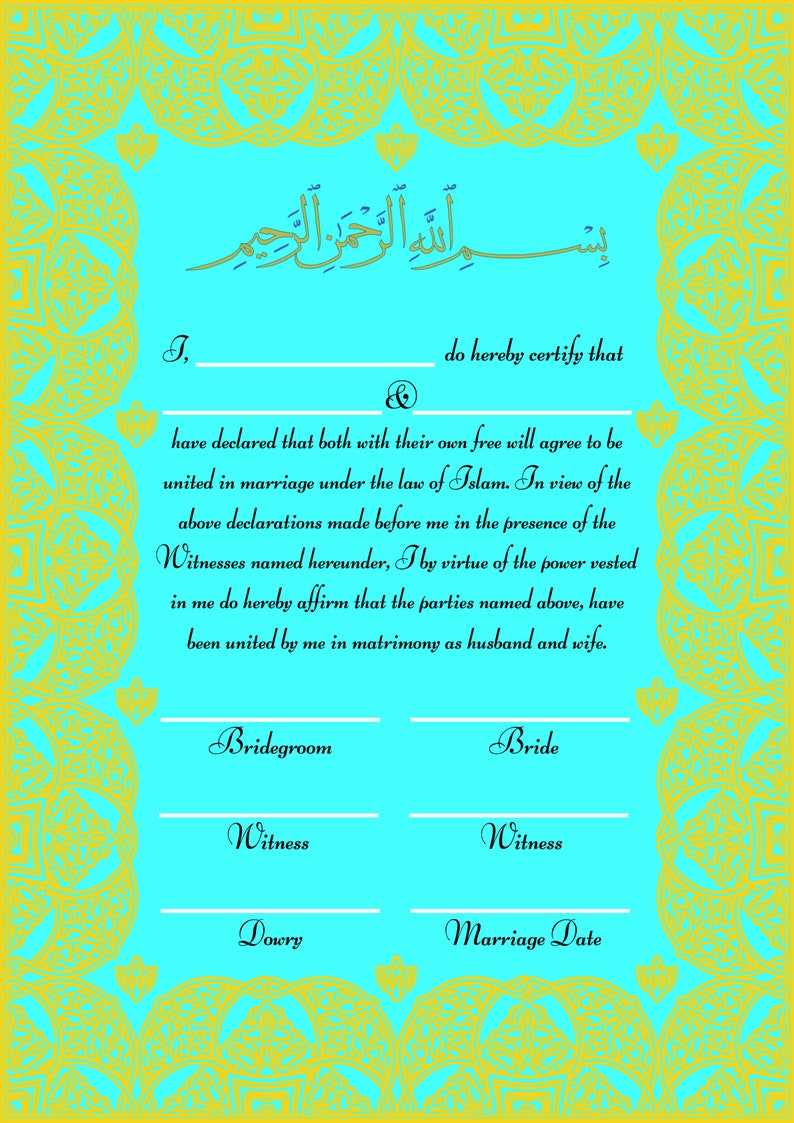 بِسْمِ اللَّهِ الرَّحْمَٰنِ الرَّحِيمِ
I, do hereby certify that
&
have declared that both with their own free will agree to be
united in marriage under the law of Islam. In view of the
above declarations made before me in the presence of the
Witnesses named hereunder, I by virtue of the power vested
in me do hereby affirm that the parties named above, have
been united by me in matrimony as husband and wife.
Bridegroom Bride
Witness Witness
Dowry Marriage Date